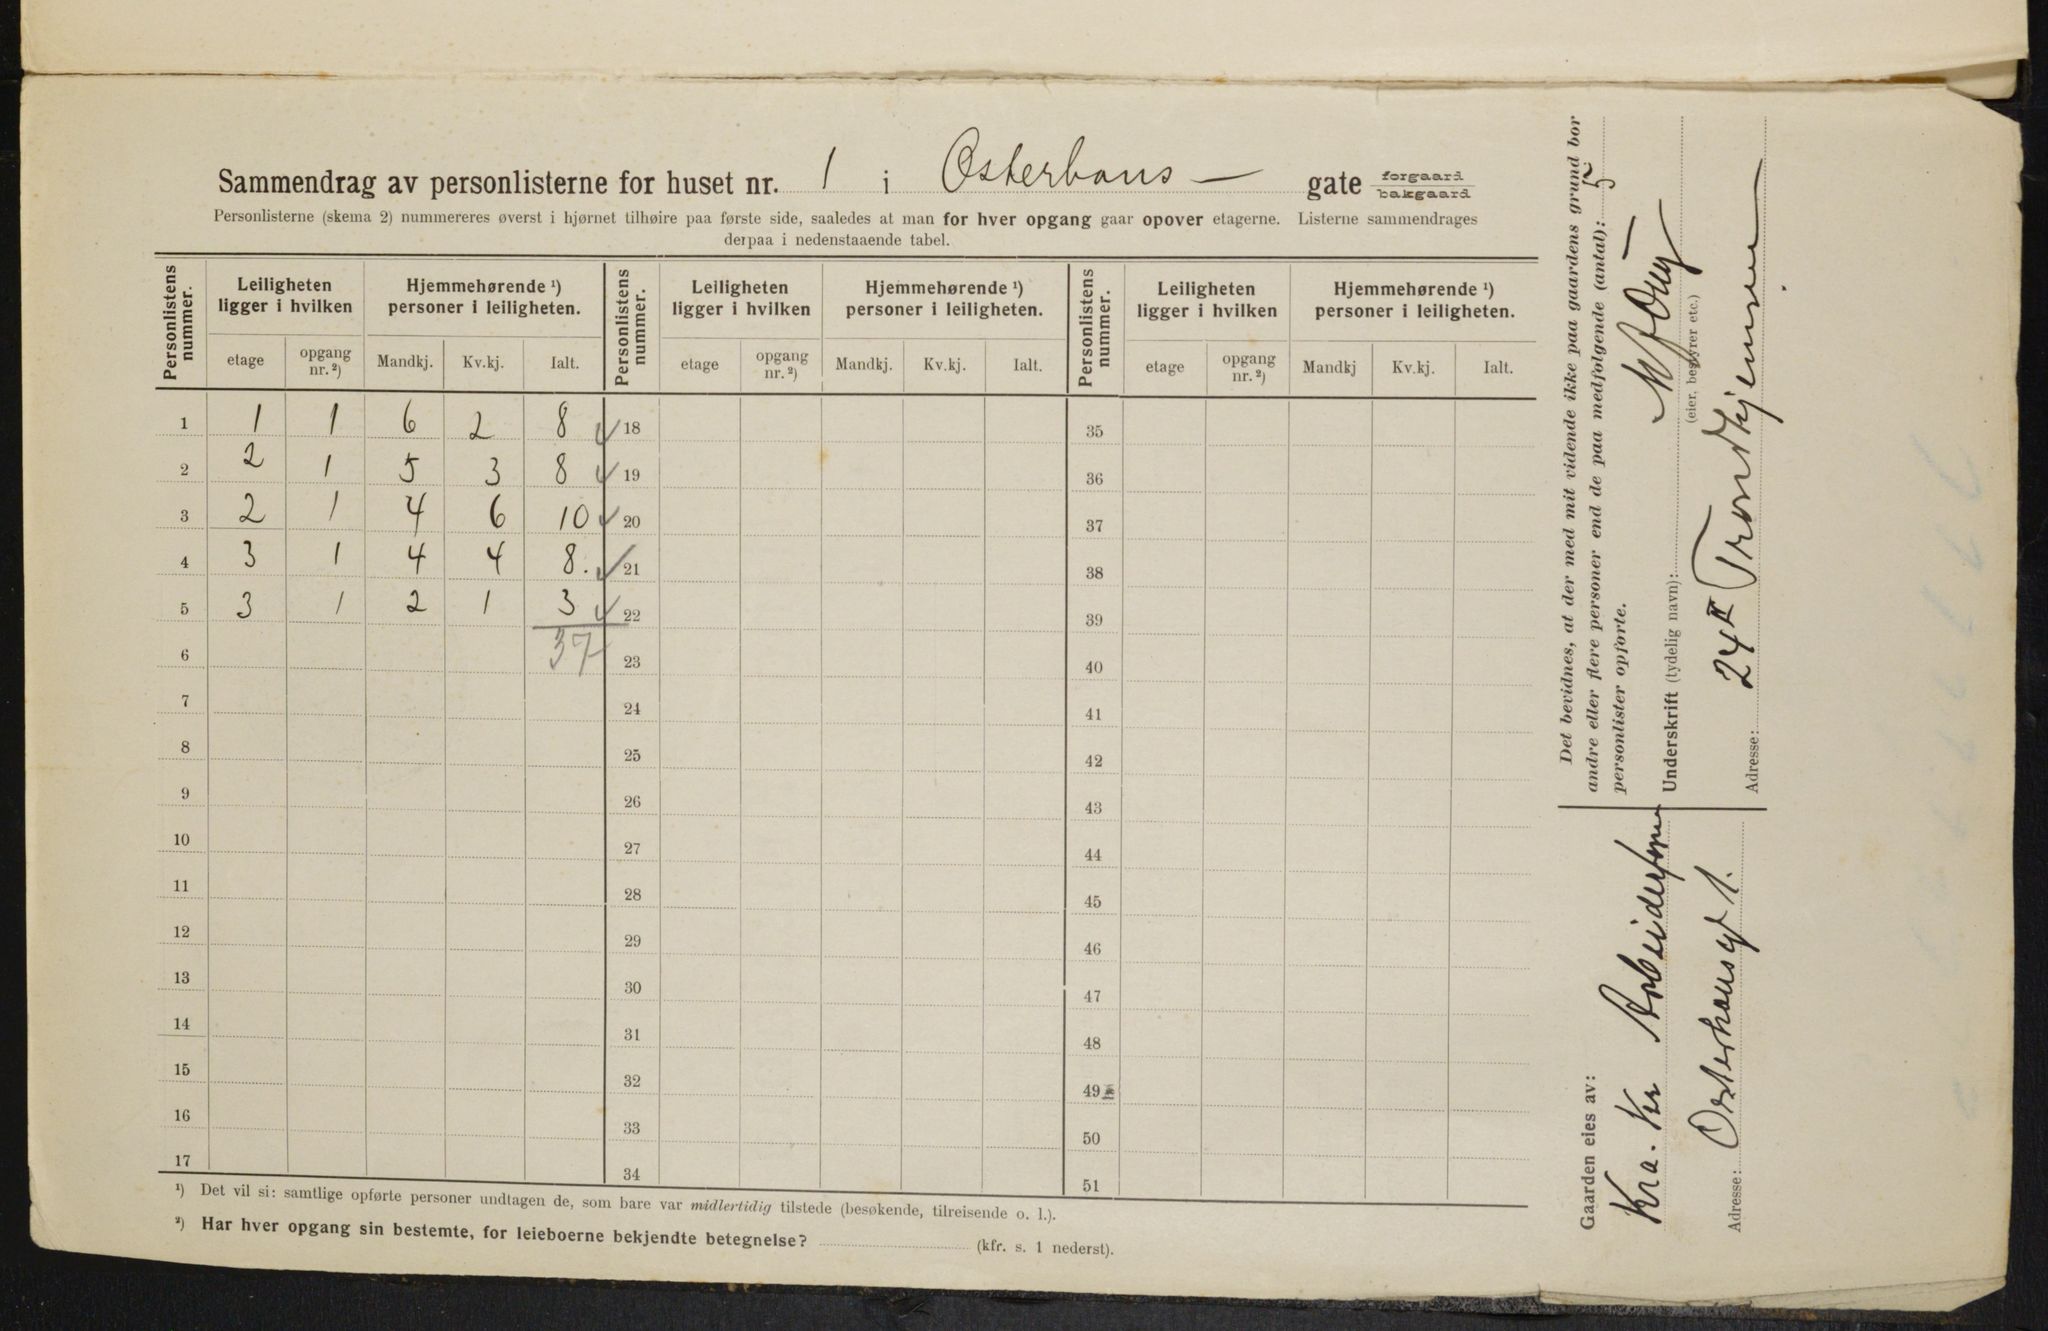 Sammendrag av personlisterne for huset nr. 1 i Osterhaus — gate forgaard bakgaard
Personlisterne (skema 2) nummereres øverst i hjørnet tilhøire paa første side, saaledes at man for hver opgang gaar opover etagerne. Listerne sammendrages
derpaa i nedenstaaende tabel.
Personlistens nummer. Leiligheten ligger i hvilken Hjemmehørende ¹) personer i leiligheten. Personlistens nummer. Leiligheten ligger i hvilken Hjemmehørende ¹) personer i leiligheten. Personlistens nummer. Leiligheten ligger i hvilken Hjemmehørende ¹) personer i leiligheten.
etage opgang nr. ²) Mandkj. Kv.kj. Ialt. etage opgang nr. ²) Mandkj. Kv.kj. Ialt. etage opgang nr. ²) Mandkj Kv.kj. Ialt.
1 1 1 6 2 8 ✓ 18 35
2 2 1 5 3 8 ✓ 19 36
3 2 1 4 6 10 ✓ 20 37
4 3 1 4 4 8. ✓ 21 38
5 3 1 2 1 3 ✓ 22 39
6 37 23 40
7 24 41
8 25 42
9 26 43
10 27 44
11 28 45
12 29 46
13 30 47
14 31 48
15 32 49
16 33 50
17 34 51
¹) Det vil si: samtlige opførte personer undtagen de, som bare var midlertidig tilstede (besøkende, tilreisende o. l.).
²) Har hver opgang sin bestemte, for leieboerne bekjendte betegnelse? (kfr. s. 1 nederst).
Det bevidnes, at der med mit vidende ikke paa gaardens grund bor
andre eller flere personer end de paa medfølgende (antal): 5
personlister opførte.
Underskrift (tydelig navn):
(eier, bestyrer etc.)
Adresse: 24 II Trondhjemsvn
Gaarden eies av:
Kra. Kr Arbeiderforn
Adresse: Osterhausgt 1.